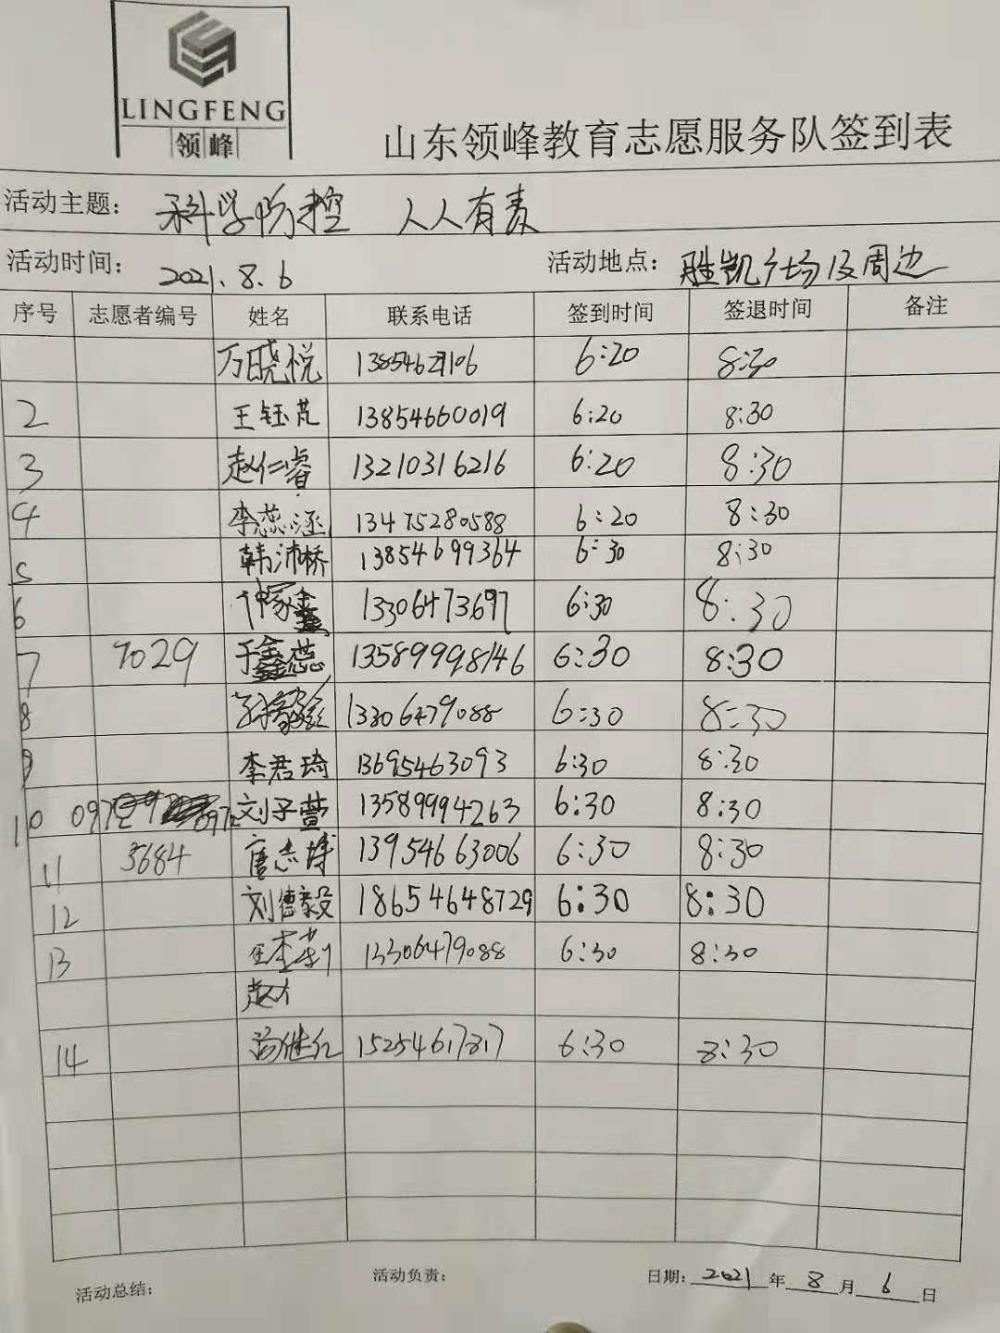 LINGFENG
领峰
山东领峰教育志愿服务队签到表
活动主题： 科学防控 人人有责
活动时间： 2021.8.6 活动地点： 胜凯广场及周边
序号 志愿者编号 姓名 联系电话 签到时间 签退时间 备注
万晓悦 6:20 8:30
2 王钰芃 13854660019 6:20 8:30
3 赵仁睿 13210316216 6:20 8:30
4 李蕊涵 13475280588 6:20 8:30
5 韩沛桥 13854699364 6:30 8:30
6 13306473697 6:30 8:30
7 7029 于鑫蕊 13589998146 6:30 8:30
8 13306479088 6:30 8:30
9 李君琦 13695463093 6:30 8:30
10 刘子萱 13589994263 6:30 8:30
11 3684 唐志博 13954663006 6:30 8:30
12 刘德毅 18654648729 6:30 8:30
13 13306479088 6:30 8:30
赵
14 15254617817 6:30 8:30
活动总结： 活动负责： 日期： 2021 年 8 月 6 日